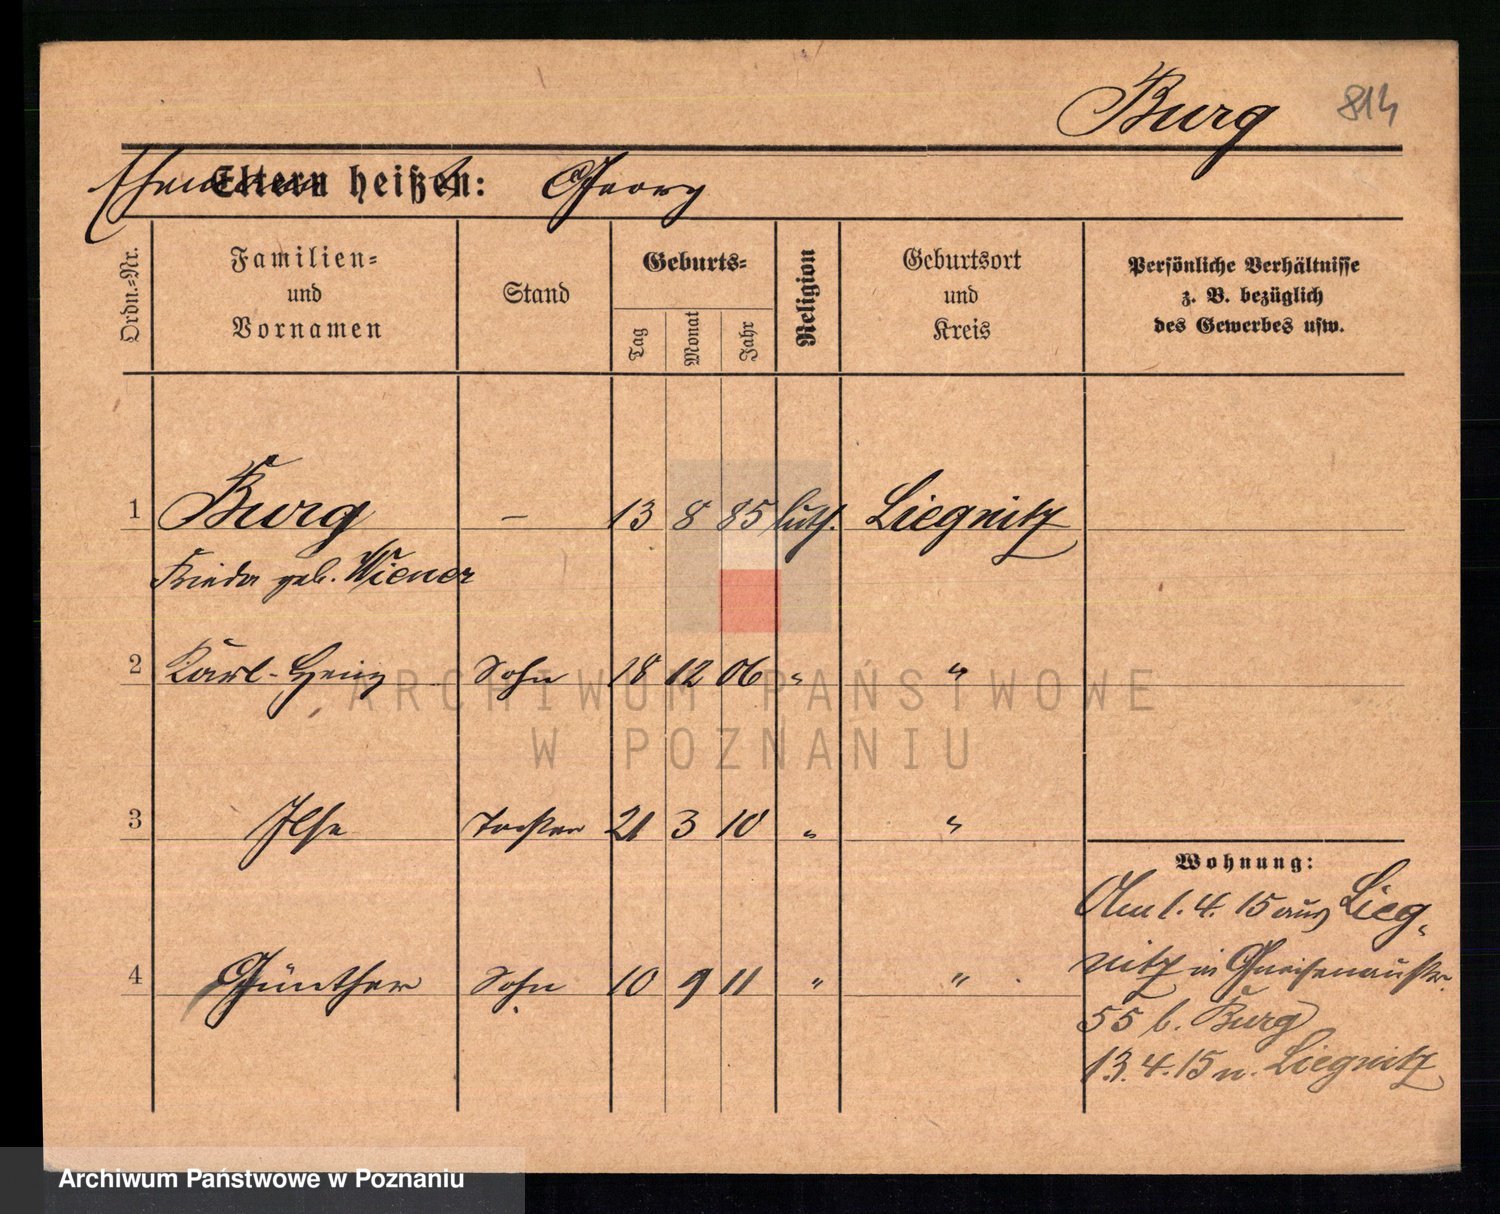 Burg 814
Ehemann heißt: Georg
Ordn.-Nr.
Familien-
und
Vornamen
Stand
Geburts-
Tag
Monat
Jahr
Religion
Geburtsort
und
Kreis
Persönliche Verhältnisse
z. B. bezüglich
des Gewerbes usw.
1 Burg — 13 8 85 luth. Liegnitz
Frieda geb. Wiener
2 Karl-Heinz Sohn 18 12 06 " "
ARCHIWUM PAŃSTWOWE
W POZNANIU
3 Ilse Tochter 21 3 10 " "
4 Günther Sohn 10 9 11 " "
Wohnung:
Am 1. 4. 15 aus Lieg-
nitz in Gneisenaustr.
55 b. Burg
13. 4. 15 n. Liegnitz
Archiwum Państwowe w Poznaniu